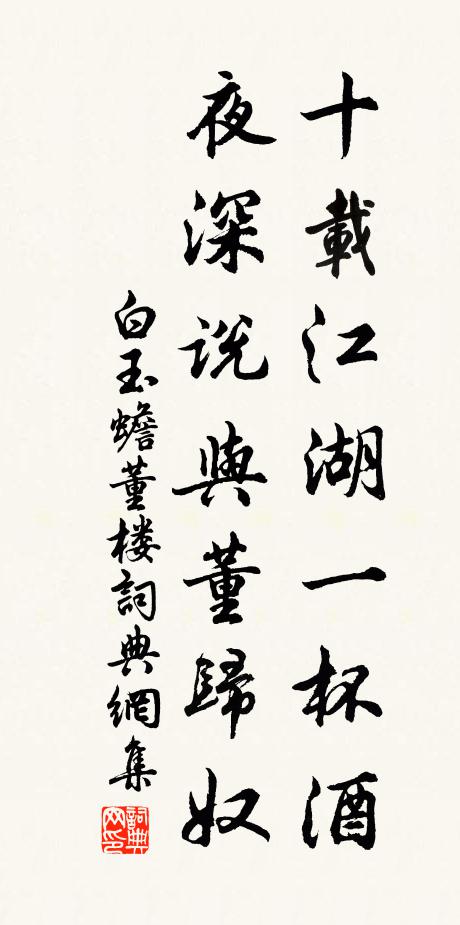 十載江湖一杯酒
夜深説與董歸奴
白玉蟾董楼詞典網集
詞典网印